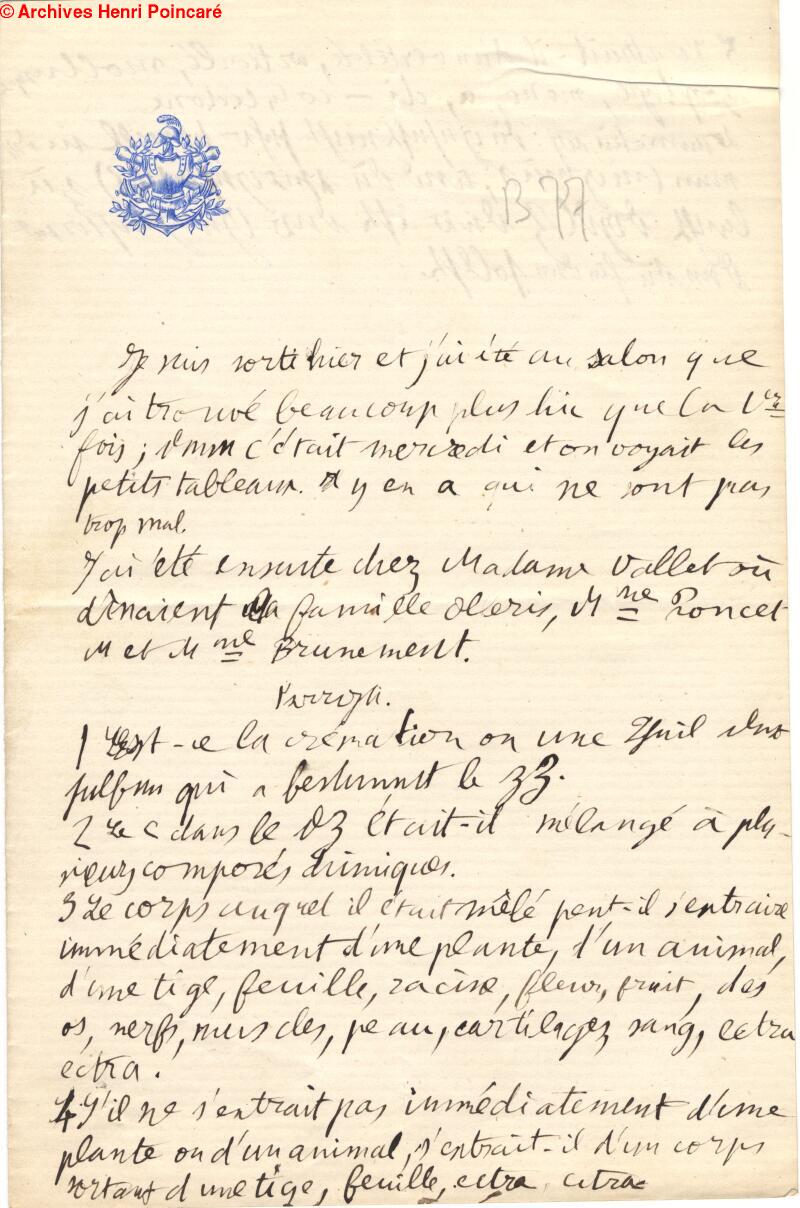 © Archives Henri Poincaré
B 77
Je suis sorti hier et j'ai été au salon que
j'ai trouvé beaucoup plus que la 1ère
fois; c'était mercredi et on voyait les
petits tableaux. Il y en a qui ne sont pas
trop mal.
J'ai été ensuite chez Madame Vallet où
dînaient la famille Olleris, Mme Poncet
M et Mme Brunement.
1 Est-ce la crémation ou une
qui a le 33.
2 Le C dans le 23 était-il mélangé à plu-
sieurs composés chimiques.
3 Le corps auquel il était mêlé peut-il s'extraire
immédiatement d'une plante, d'un animal,
d'une tige, feuille, racine, fleur, fruit, des
os, nerfs, muscles, peau, cartilages, sang, ectra
ectra.
4 S'il ne s'extrait pas immédiatement d'une
plante ou d'un animal, s'extrait-il d'un corps
sortant d'une tige, feuille, ectra ectra